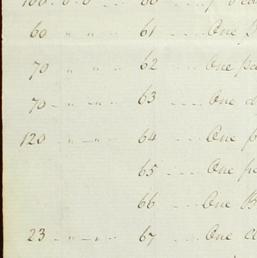 60 " " 61 ... One
70 " " 62 One pa
70 - " - " - 63 .... One
120 - " - " - 64 ... One p
65 ... One pe
66 ... One B
23 - " - " - 67 ... One